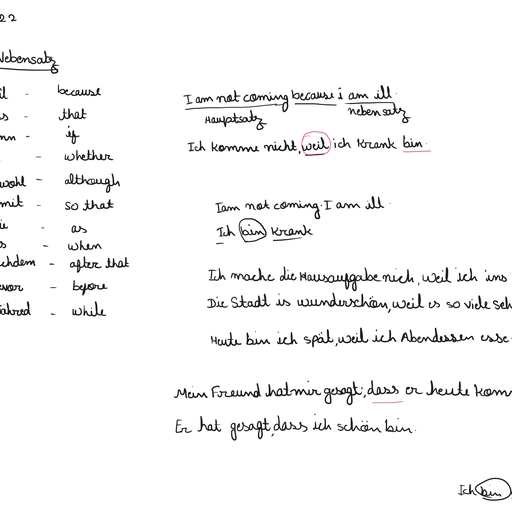 22
Nebensatz
il - because
s - that
nn - if
- whether
wohl - although
mit - so that
ie - as
s - when
chdem - after that
evor - before
ähred - while
I am not coming because i am ill.
Hauptsatz nebensatz
Ich komme nicht, weil ich Krank bin.
I am not coming. I am ill.
Ich bin Krank
Ich mache die Hausaufgabe nich, weil ich ins
Die Stadt is wunderschön, weil es so viele seh
Heute bin ich spät, weil ich Abendessen esse
Mein Freund hat mir gesagt, dass er heute kom
Er hat gesagt, dass ich schön bin.
Ich bin